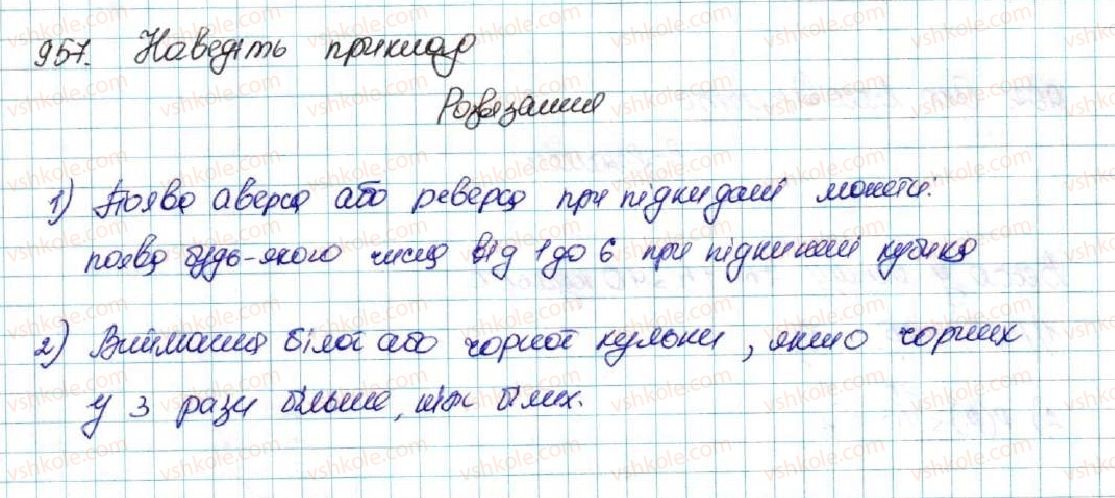 957. Наведіть приклад
Розв'язання
1) Поява аверса або реверса при підкидані монети:
поява будь-якого числа від 1 до 6 при підкинані кубика
2) Виймання білої або чорної кульки, якщо чорних
у 3 рази більше, ніж білих.